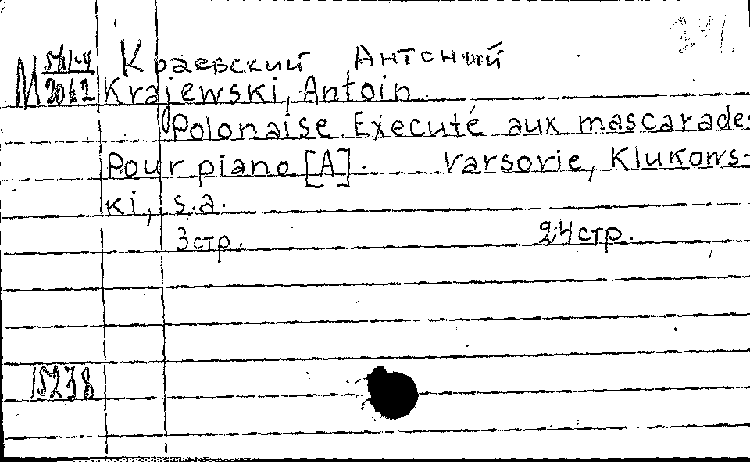 241.
Краевский Антоний
M 2042
Krajewski, Antoin.
Polonaise Executé aux mascarade
Pour piano [A]. Varsovie, Klukows-
ki, s.a.
3 стр. 24 стр.
15238